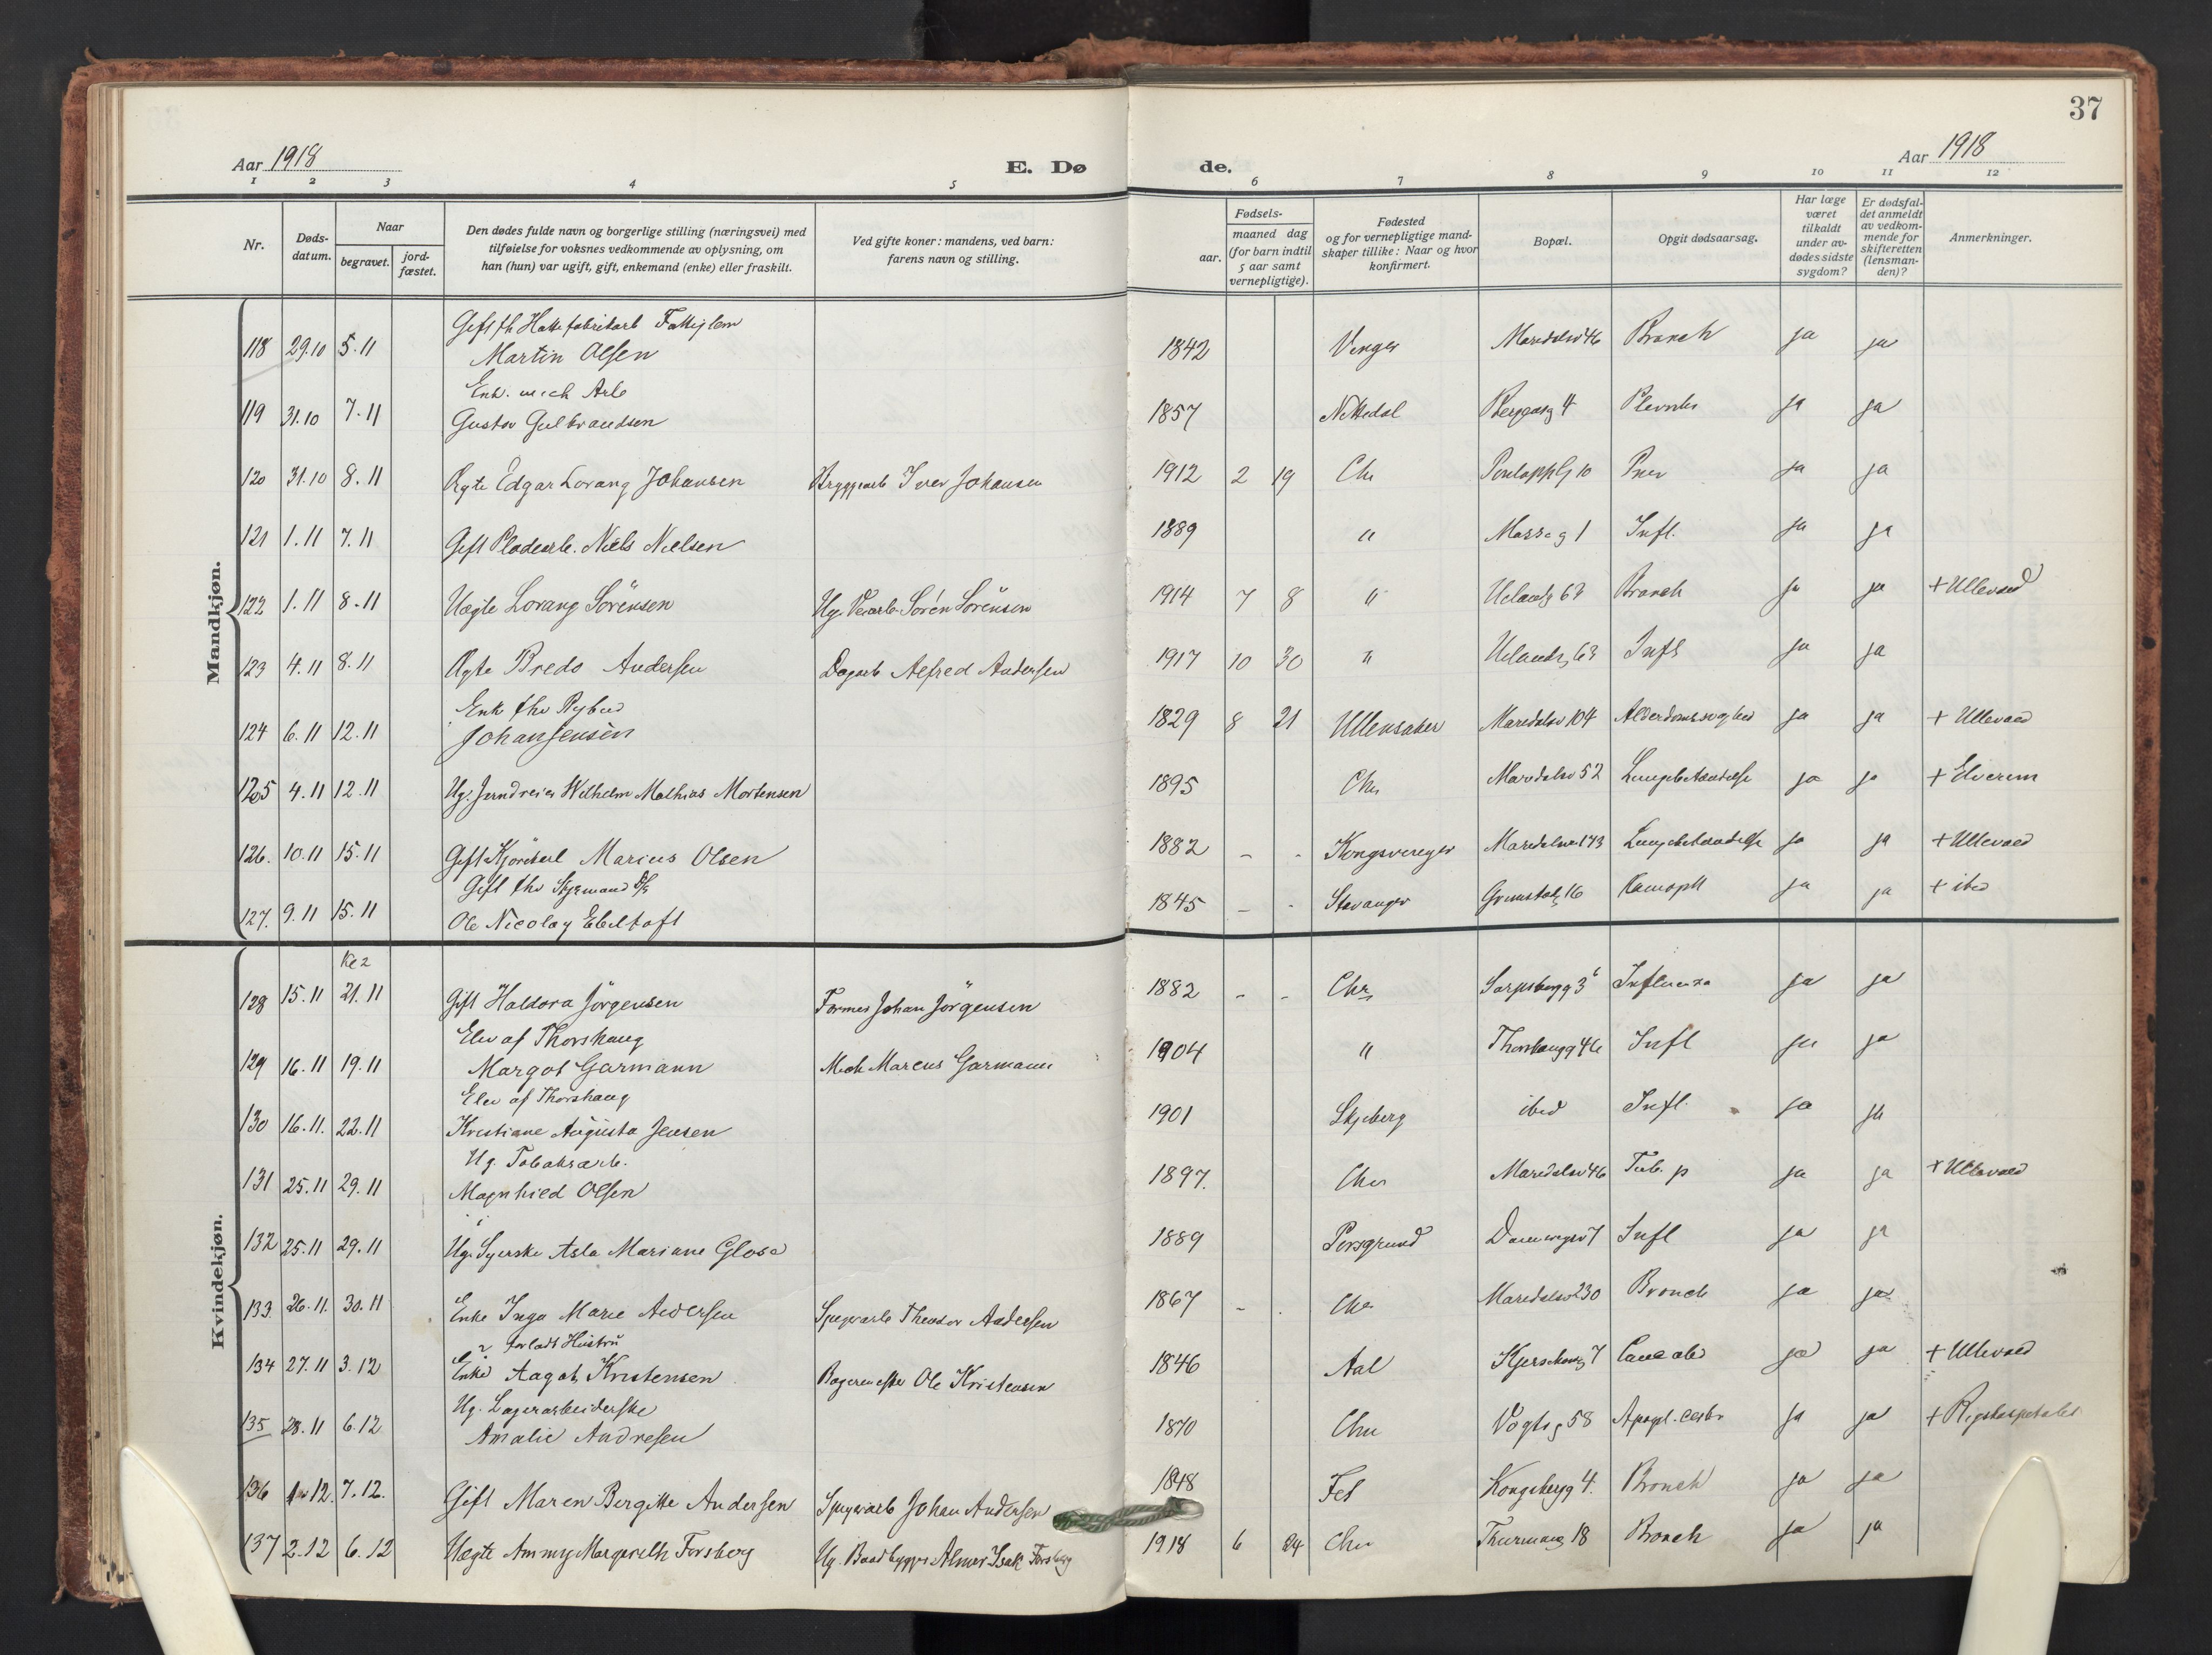 37
Aar 1918
E. Dø de.
Aar 1918
1 2 3 4 5 6 7 8 9 10 11 12
Nr.
Døds-
datum.
Naar
begravet.
jord-
fæstet.
Den dødes fulde navn og borgerlige stilling (næringsvei) med
tilføielse for voksnes vedkommende av oplysning, om
han (hun) var ugift, gift, enkemand (enke) eller fraskilt.
Ved gifte koner: mandens, ved barn:
farens navn og stilling.
Fødsels-
aar.
maaned dag
(for barn indtil
5 aar samt
vernepligtige).
Fødested
og for vernepligtige mand-
skaper tillike: Naar og hvor
konfirmert.
Bopæl.
Opgit dødsaarsag.
Har læge
været
tilkaldt
under av-
dødes sidste
sygdom?
Er dødsfal-
det anmeldt
av vedkom-
mende for
skifteretten
(lensman-
den)?
Anmerkninger.
Mandkjøn.
Gift fh Hattefabrikarb Fattiglem
118 29.10 5.11 Martin Olsen 1842 Vinger Maridalsv 46 Bronch ja ja
Enk. mech Arb
119 31.10 7.11 Gustav Gulbrandsen 1857 Nittedal 4 ja ja
120 31.10 8.11 Ægte Edgar Lorang Johansen Bryggearb Iver Johansen 1912 2 19 Chr 10 Pneu ja ja
121 1.11 7.11 Gift Pladearb. Niels Nielsen 1889 " 1 Infl. ja ja
122 1.11 8.11 Uægte Lorang Sörensen Ug. Sörén Sörensen 1914 7 8 " Uelandsg 63 Bronch ja ja + Ullevaal
123 4.11 8.11 Ægte Bredo Andersen Dagarb Alfred Andersen 1917 10 30 " Uelandsg 63 Infl ja ja
Enk fhv Rybud
124 6.11 12.11 Johan Jensen 1829 8 21 Ullensaker Maridalsv 104 Alderdomssvaghed ja ja + Ullevaal
125 4.11 12.11 Ug. Jerndreier Wilhelm Mathias Mortensen 1895 Chr Maridalsv 52 Lungebetændelse ja ja + Elverum
126. 10.11 15.11 Gift Kjörekarl Marius Olsen 1882 - - Kongsvinger Maridalsv 173 Lungebetændelse ja ja + Ullevaal
Gift fhv Styrmand
127. 9.11 15.11 Ole Nicolay Ebeltoft 1845 - - Stavanger Grimstadg 16 ja ja + ibid
Kvindekjøn.
Kl 2
128 15.11 21.11 Gift Haldora Jörgensen Former Johan Jörgensen 1882 - - Chr Sarpsborgg 3 Influenza ja ja
Elev af Thorshaug
129 16.11 19.11 Margot Garmann Mek Marcus Garmann 1904 " Thorshaugg 46 Infl ja ja
Elev af Thorshaug
130 16.11. 22.11 Kristiane Augusta Jensen 1901 Skjeberg ibid Infl. ja ja
Ug. Tobaksarb.
131 25.11 29.11 Magnhild Olsen 1897. Chr Maridalsv 46 Tub. p ja ja + Ullevaal
132 25.11 29.11 Ug. Syerske Asla Mariane Glosa 1889 Porsgrund 7 Infl ja ja
133 26.11. 30.11 Enke Inga Marie Andersen Spigerarb Theodor Andersen 1867 - . Chr Maridalsv 230 Bronch ja ja
? forladt Hustru
134 27.11 3.12 Enke Aagot Kristensen Bagermester Ole Kristensen 1846 Aal 7 ja ja + Ullevaal
Ug. Lagerarbeiderske
135 28.11 6.12 Amalie Andresen 1870 Chr Vogtsg 58 Apopl. cerebr ja ja + Rigshospitalet
136 12. 7.12. Gift Maren Bergitte Andersen Spigerarb Johan Andersen 1848 Fet Kongsbergg 4. Bronch ja ja
137 2.12 6.12 Uægte Ammy Margareth Forsberg Ug. Baadbygger Almer Isak Forsberg 1918 6 24 Chr 18 Bronch ja ja